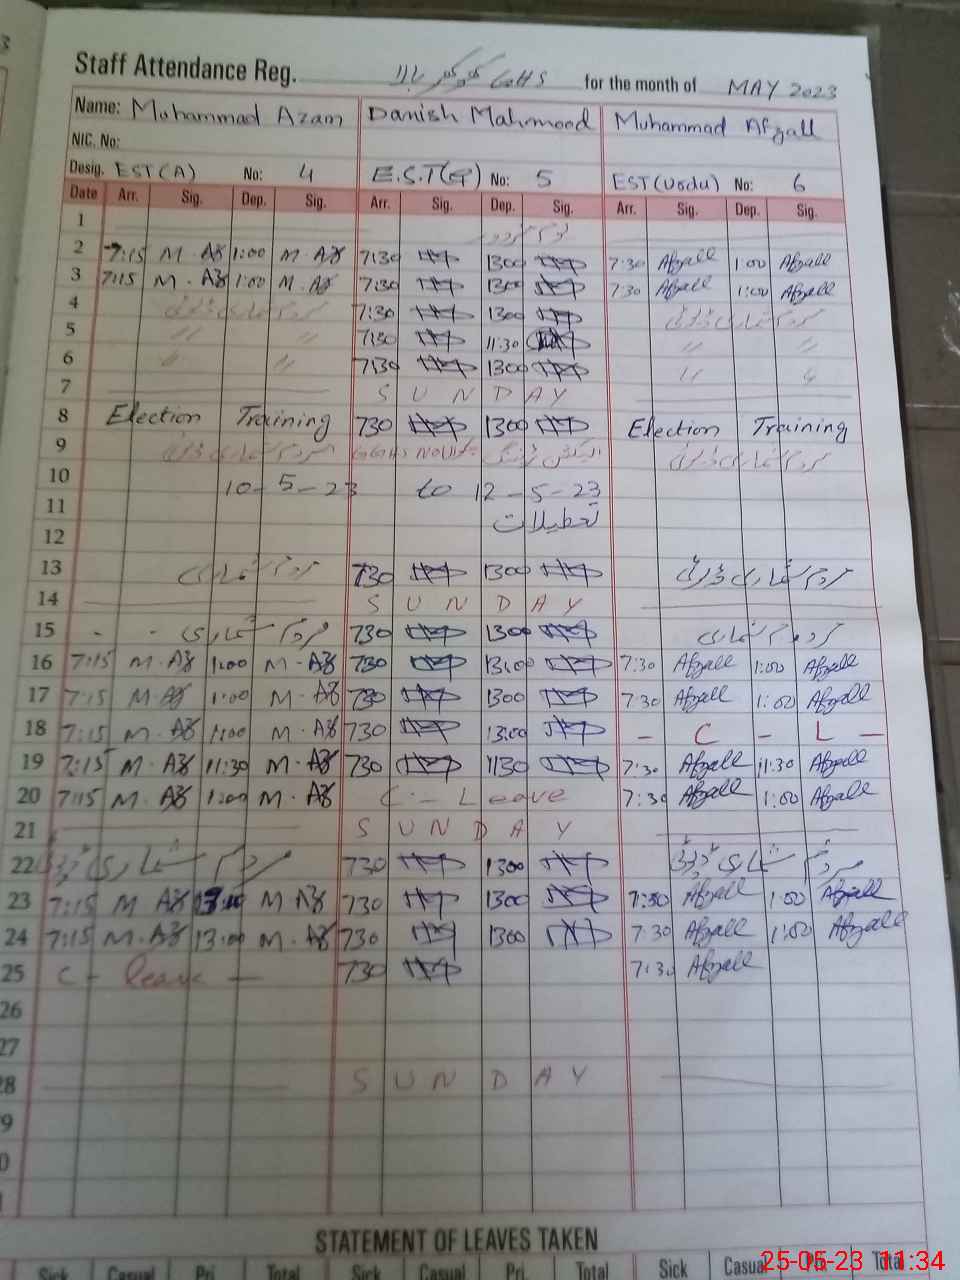 Staff Attendance Reg. GHS for the month of MAY 2023
Name: Muhammad Azam Danish Mahmood Muhammad Afzall
NIC. No:
Desig. EST(A) No: 4 E.S.T(G) No: 5 EST(Urdu) No: 6
Date Arr. Sig. Dep. Sig. Arr. Sig. Dep. Sig. Arr. Sig. Dep. Sig.
1
2 7:15 M.AZ 1:00 M.AZ 7:30 1300 7:30 Afzall 1:00 Afzall
3 7:15 M.AZ 1:00 M.AZ 7:30 1300 7:30 Afzall 1:00 Afzall
4 مردم شماری ڈیوٹی 7:30 1300 مردم شماری ڈیوٹی
5 〃 〃 7:30 11:30 〃 〃
6 〃 〃 7:30 1300 〃 〃
7 SUNDAY
8 Election Training 730 1300 Election Training
9 مردم شماری ڈیوٹی مردم شماری ڈیوٹی
10 10-5-23 to 12-5-23
11 تعطیلات
12
13 مردم شماری 730 1300 مردم شماری ڈیوٹی
14 SUNDAY
15 مردم شماری 730 1300 مردم شماری
16 7:15 M.AZ 1:00 M.AZ 730 13:00 7:30 Afzall 1:00 Afzall
17 7:15 M.AZ 1:00 M.AZ 730 1300 7:30 Afzall 1:00 Afzall
18 7:15 M.AZ 1:00 M.AZ 730 1300 - C - L -
19 7:15 M.AZ 11:30 M.AZ 730 1130 7:30 Afzall 11:30 Afzall
20 7:15 M.AZ 1:00 M.AZ C - Leave 7:30 Afzall 1:00 Afzall
21 SUNDAY
22 مردم شماری ڈیوٹی 730 1300 مردم شماری ڈیوٹی
23 7:15 M AZ 13:00 M AZ 730 1300 7:30 Afzall 1:00 Afzall
24 7:15 M.AZ 13:00 M AZ 730 1300 7:30 Afzall 1:00 Afzall
25 C - leave - 730 7:30 Afzall
26
27
28 SUNDAY
9
0
STATEMENT OF LEAVES TAKEN
Sick Casual Pri. Total Sick Casual Pri. Total Sick Casual Pri. Total
25-05-23 11:34